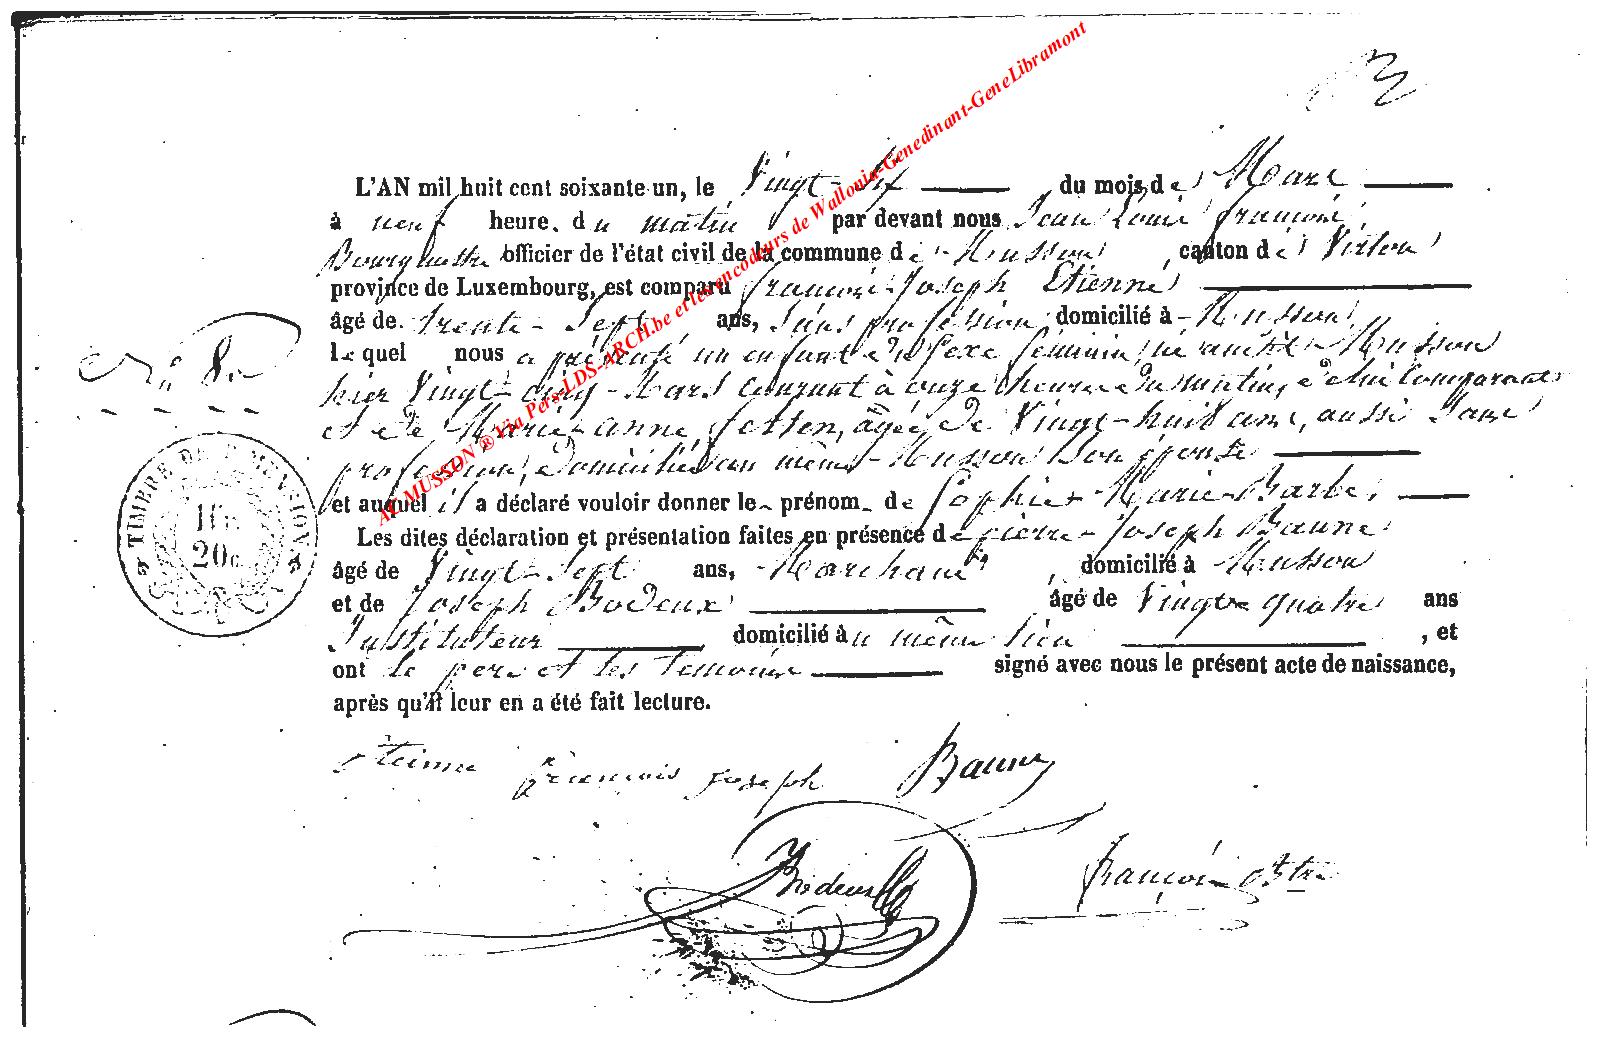 3
L'AN mil huit cent soixante un, le Vingt-Six du mois de Mars
à neuf heure. du matin par devant nous Jean Louis françois,
Bourgmestre officier de l'état civil de la commune de Musson, canton de Virton
province de Luxembourg, est comparu françois Joseph Etienne
âgé de. trente-Sept ans, Sans profession domicilié à Musson
lequel nous a présenté un enfant du Sexe féminin, né à Musson
hier Vingt-cinq Mars courant à onze heures du matin, de lui Comparant
et de Marie-anne, âgée de Vingt-huit ans, aussi Sans
profession, domiciliés au même Musson Son épouse
et auquel il a déclaré vouloir donner le prénom de Sophie-Marie-Barbe,
Les dites déclaration et présentation faites en présence de pierre-Joseph Baune
âgé de Vingt-Sept ans, Marchand, domicilié à Musson
et de Joseph Bodeux âgé de Vingt-quatre ans
Instituteur domicilié au même lieu, et
ont le père et les témoins signé avec nous le présent acte de naissance,
après qu'il leur en a été fait lecture.
N° 8.
TIMBRE DE DIMENSION
1fr
20c
AC MUSSON ® Via Pers-LDS-ARCH.be et les encodeurs de Wallonia-Genedinant-GeneLibramont
Etienne françois Joseph Baune
Bodeux
françois Bstre